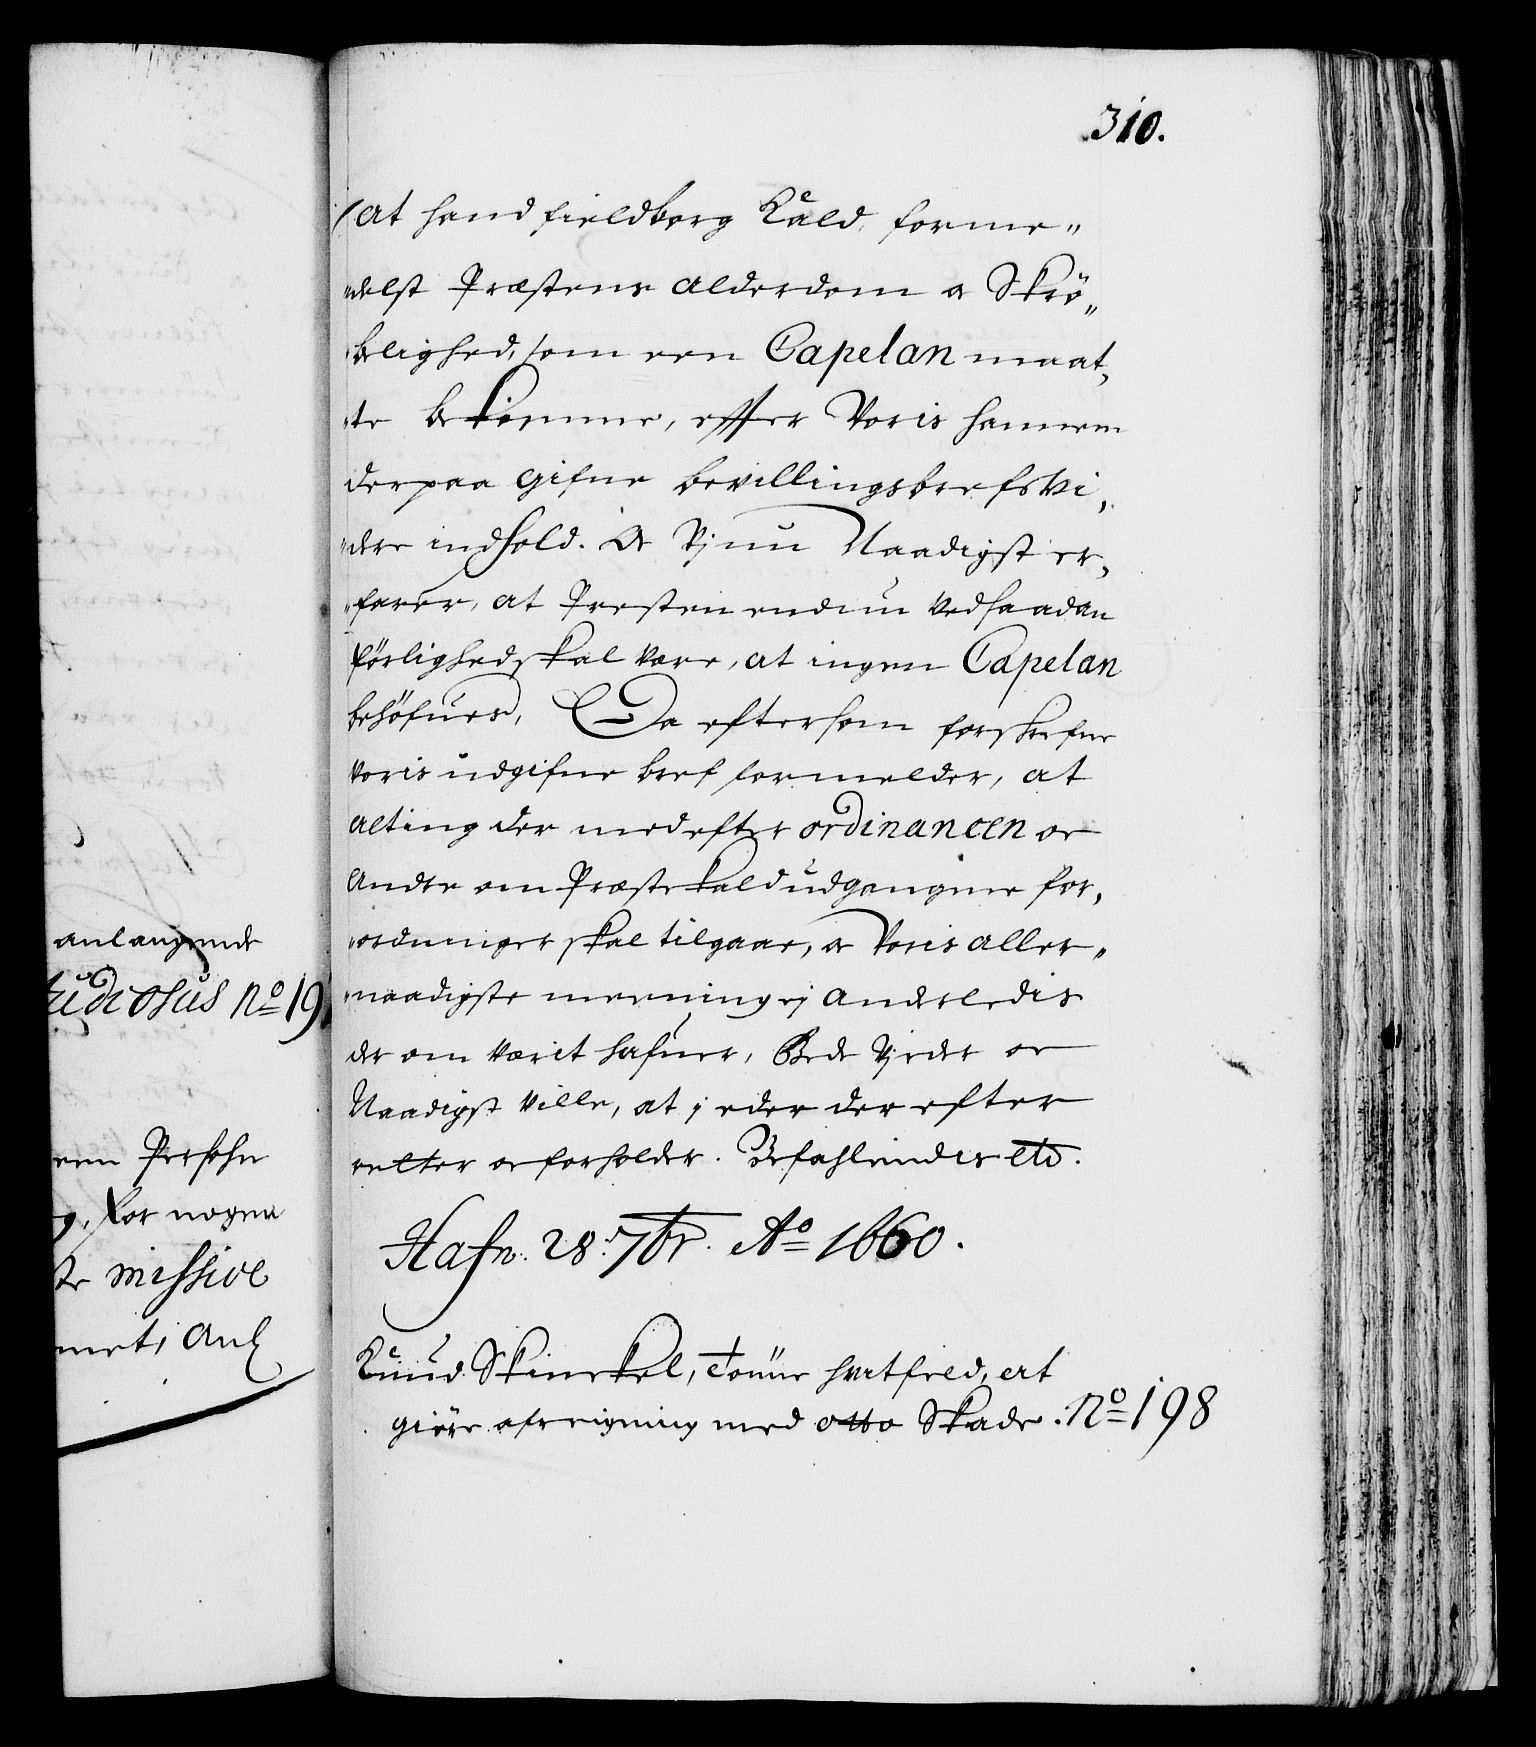 310.
at hand fieldborg Kald, forme„
„delst Præstens Alderdom oc Skrö„
„belighed, som een Capelan maat„
„te bekomme, effter Voris hannem
derpaa gifne bevillingsbrefs vi„
„dere indhold. Oc Vj nu Naadigst er„
„farer, at Presten endnu ved saadan
förlighed skal være, at ingen Capelan
behöfues, Da eftersom forskrefne
voris udgifne bref formelder, at
alting der med efter ordinancen oc
Andre om Præstekald udgangne for„
„ordninger skal tilgaae, oc Voris aller„
„naadigste meening ej anderledis
der om værit hafuer, Bede Vj eder oc
Naadigst ville, at j eder der efter
retter oc forholder. Befahlendis etc.
Hafn: 28. 7br. Ao 1660.
Knud Skinckel, Tönne hvitfeld, at
giöre afreigning med Otto Skade. No 198
anlangende
tudiosus No 19
een Persohn
for nogen
te missive
met, Anl